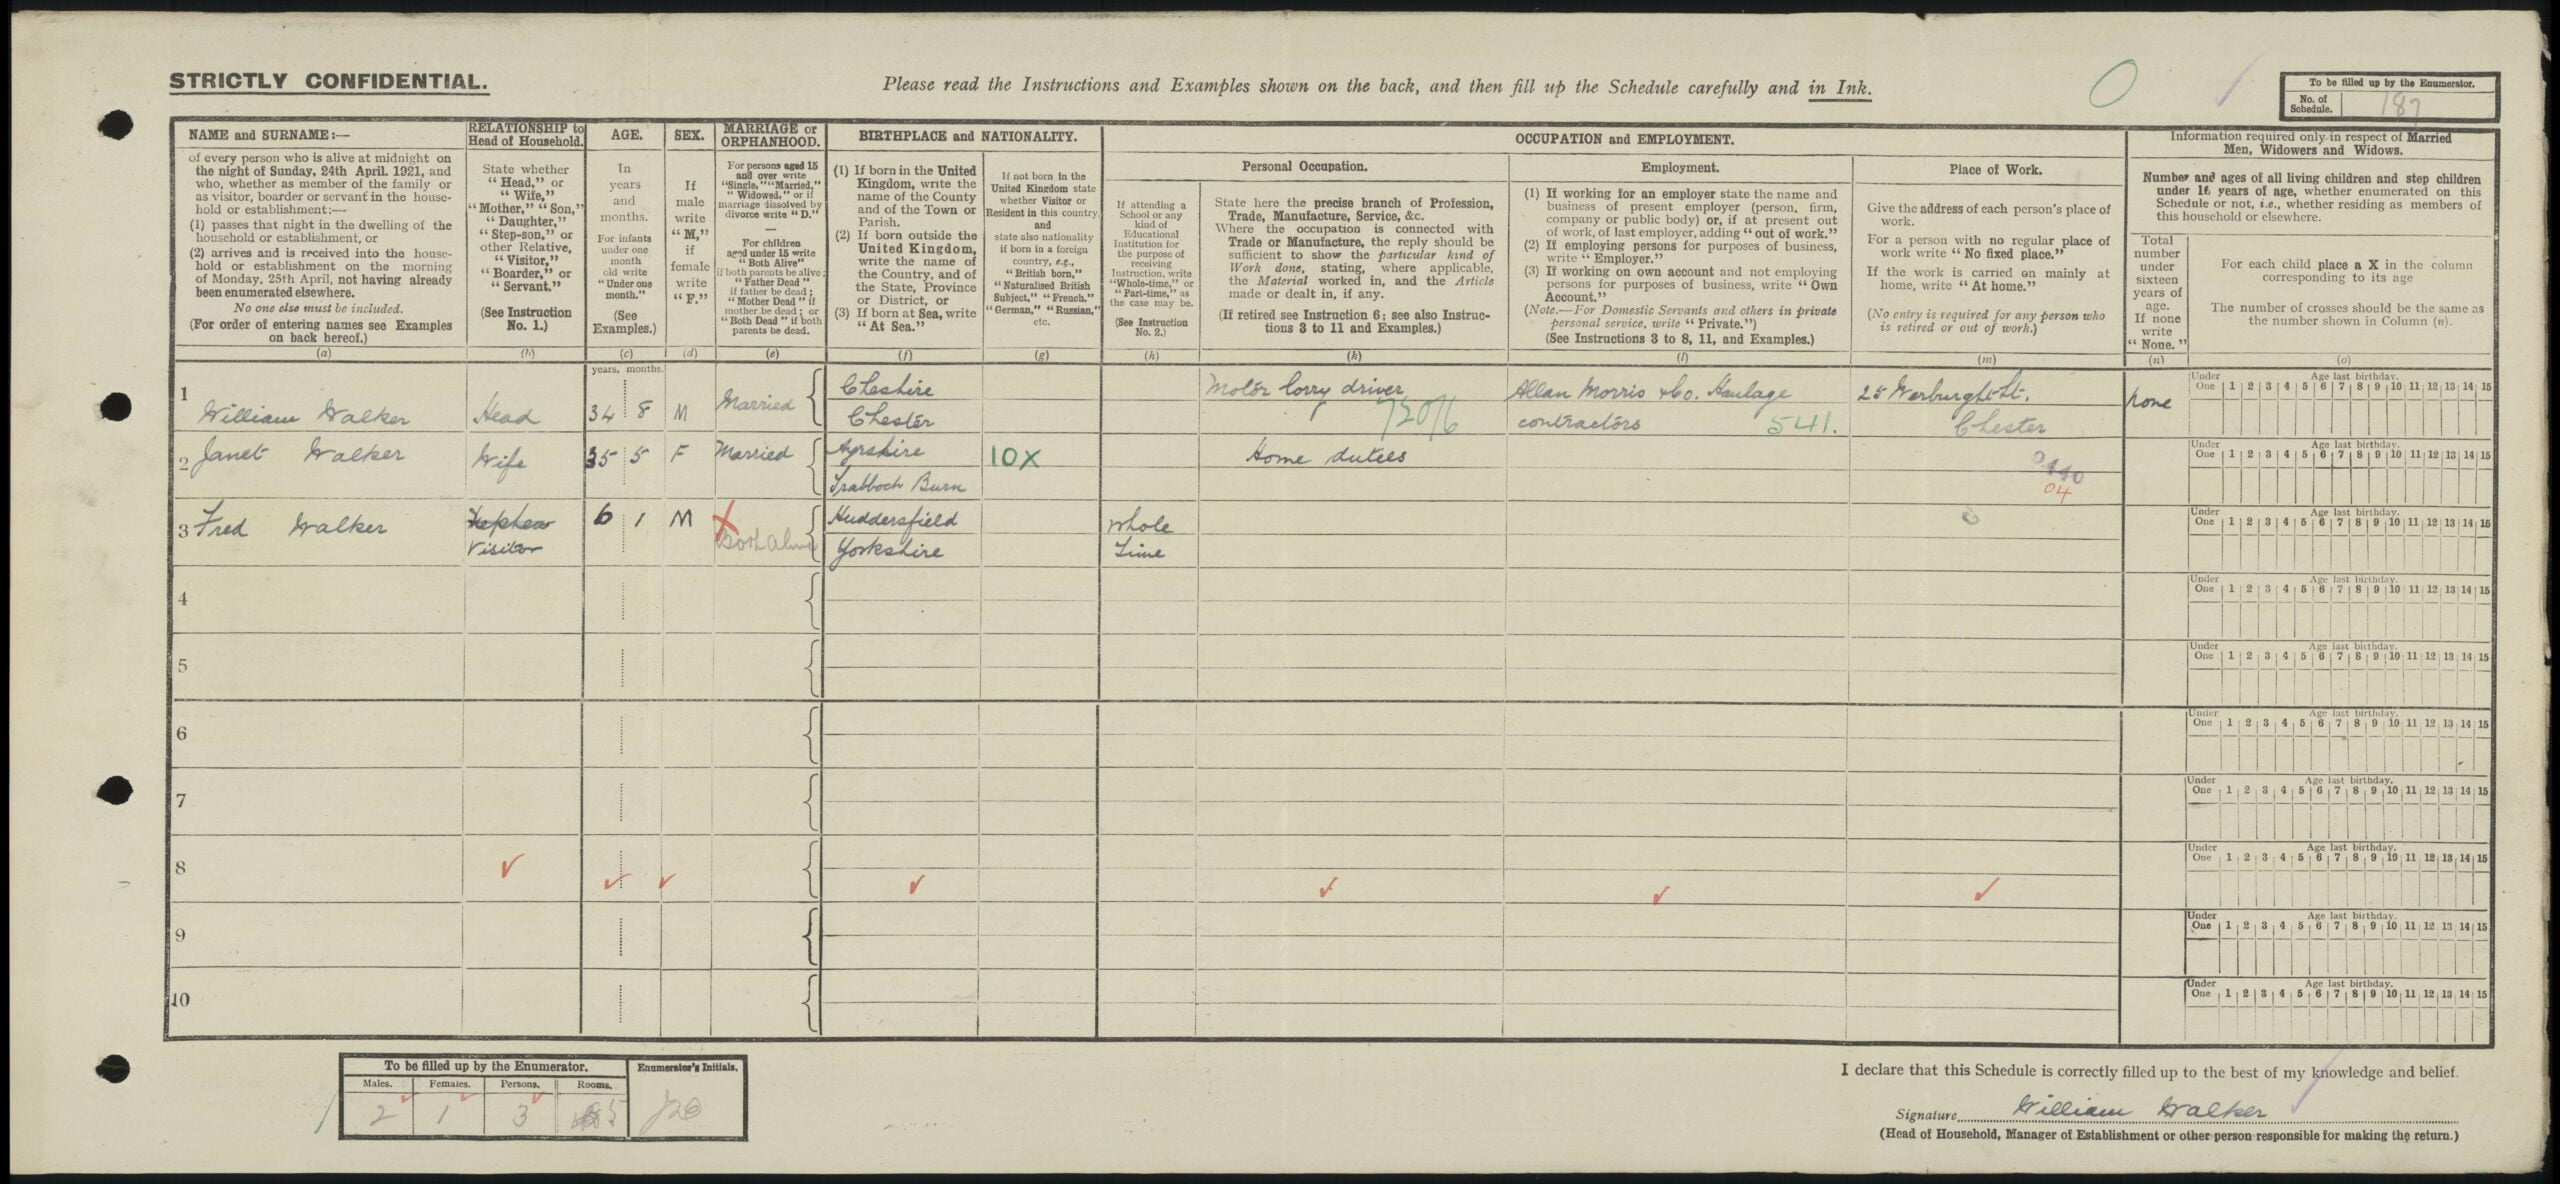 STRICTLY CONFIDENTIAL.
Please read the Instructions and Examples shown on the back, and then fill up the Schedule carefully and in Ink.
To be filled up by the Enumerator.
No. of Schedule. 187
NAME and SURNAME:—
of every person who is alive at midnight on
the night of Sunday, 24th April, 1921, and
who, whether as member of the family or
as visitor, boarder or servant in the house-
hold or establishment:—
(1) passes that night in the dwelling of the
household or establishment, or
(2) arrives and is received into the house-
hold or establishment on the morning
of Monday, 25th April, not having already
been enumerated elsewhere.
No one else must be included.
(For order of entering names see Examples
on back hereof.)
(a)
RELATIONSHIP to
Head of Household.
State whether
"Head," or
"Wife,"
"Mother," "Son,"
"Daughter,"
"Step-son," or
other Relative,
"Visitor,"
"Boarder," or
"Servant."
(See Instruction
No. 1.)
(b)
AGE.
In
years
and
months.
For infants
under one
month
old write
"Under one
month."
(See
Examples.)
(c)
SEX.
If
male
write
"M,"
if
female
write
"F."
(d)
MARRIAGE or
ORPHANHOOD.
For persons aged 15
and over write
"Single," "Married,"
"Widowed," or if
marriage dissolved by
divorce write "D."
—
For children
aged under 15 write
"Both Alive"
if both parents be alive;
"Father Dead"
if father be dead;
"Mother Dead" if
mother be dead; or
"Both Dead" if both
parents be dead.
(e)
BIRTHPLACE and NATIONALITY.
(1) If born in the United
Kingdom, write the
name of the County
and of the Town or
Parish.
(2) If born outside the
United Kingdom,
write the name of
the Country, and of
the State, Province
or District, or
(3) If born at Sea, write
"At Sea."
(f)
If not born in the
United Kingdom state
whether Visitor or
Resident in this country,
and
state also nationality
if born in a foreign
country, e.g.,
"British born,"
"Naturalised British
Subject," "French,"
"German," "Russian,"
etc.
(g)
OCCUPATION and EMPLOYMENT.
If attending a
School or any
kind of
Educational
Institution for
the purpose of
receiving
Instruction, write
"Whole-time," or
"Part-time," as
the case may be.
(See Instruction
No. 2.)
(h)
Personal Occupation.
State here the precise branch of Profession,
Trade, Manufacture, Service, &c.
Where the occupation is connected with
Trade or Manufacture, the reply should be
sufficient to show the particular kind of
Work done, stating, where applicable,
the Material worked in, and the Article
made or dealt in, if any.
(If retired see Instruction 6; see also Instruc-
tions 3 to 11 and Examples.)
(k)
Employment.
(1) If working for an employer state the name and
business of present employer (person, firm,
company or public body) or, if at present out
of work, of last employer, adding "out of work."
(2) If employing persons for purposes of business,
write "Employer."
(3) If working on own account and not employing
persons for purposes of business, write "Own
Account."
(Note.—For Domestic Servants and others in private
personal service, write "Private.")
(See Instructions 3 to 8, 11, and Examples.)
(l)
Place of Work.
Give the address of each person's place of
work.
For a person with no regular place of
work write "No fixed place."
If the work is carried on mainly at
home, write "At home."
(No entry is required for any person who
is retired or out of work.)
(m)
Information required only in respect of Married
Men, Widowers and Widows.
Number and ages of all living children and step children
under 16 years of age, whether enumerated on this
Schedule or not, i.e., whether residing as members of
this household or elsewhere.
Total
number
under
sixteen
years of
age.
If none
write
"None."
(n)
For each child place a X in the column
corresponding to its age
The number of crosses should be the same as
the number shown in Column (n).
(o)
years. months.
1 William Walker Head 34 8 M Married Cheshire Chester Motor lorry driver 720/6 Allan Morris & Co. Haulage contractors 541. 25 Werburgh St. Chester none
Under One 1 2 3 4 5 6 7 8 9 10 11 12 13 14 15 Age last birthday.
2 Janet Walker Wife 35 5 F Married Ayrshire Trabboch Burn 10X Home duties 04
Under One 1 2 3 4 5 6 7 8 9 10 11 12 13 14 15 Age last birthday.
3 Fred Walker Nephew Visitor 6 1 M Both Alive Huddersfield Yorkshire Whole Time
Under One 1 2 3 4 5 6 7 8 9 10 11 12 13 14 15 Age last birthday.
4
Under One 1 2 3 4 5 6 7 8 9 10 11 12 13 14 15 Age last birthday.
5
Under One 1 2 3 4 5 6 7 8 9 10 11 12 13 14 15 Age last birthday.
6
Under One 1 2 3 4 5 6 7 8 9 10 11 12 13 14 15 Age last birthday.
7
Under One 1 2 3 4 5 6 7 8 9 10 11 12 13 14 15 Age last birthday.
8
Under One 1 2 3 4 5 6 7 8 9 10 11 12 13 14 15 Age last birthday.
9
Under One 1 2 3 4 5 6 7 8 9 10 11 12 13 14 15 Age last birthday.
10
Under One 1 2 3 4 5 6 7 8 9 10 11 12 13 14 15 Age last birthday.
To be filled up by the Enumerator.
Males. Females. Persons. Rooms.
2 1 3 5
Enumerator's Initials.
I declare that this Schedule is correctly filled up to the best of my knowledge and belief.
Signature William Walker
(Head of Household, Manager of Establishment or other person responsible for making the return.)